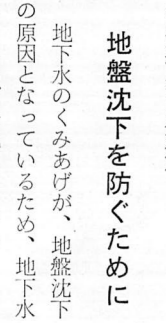 地盤沈下を防ぐために
地下水のくみあげが、地盤沈下
の原因となっているため、地下水